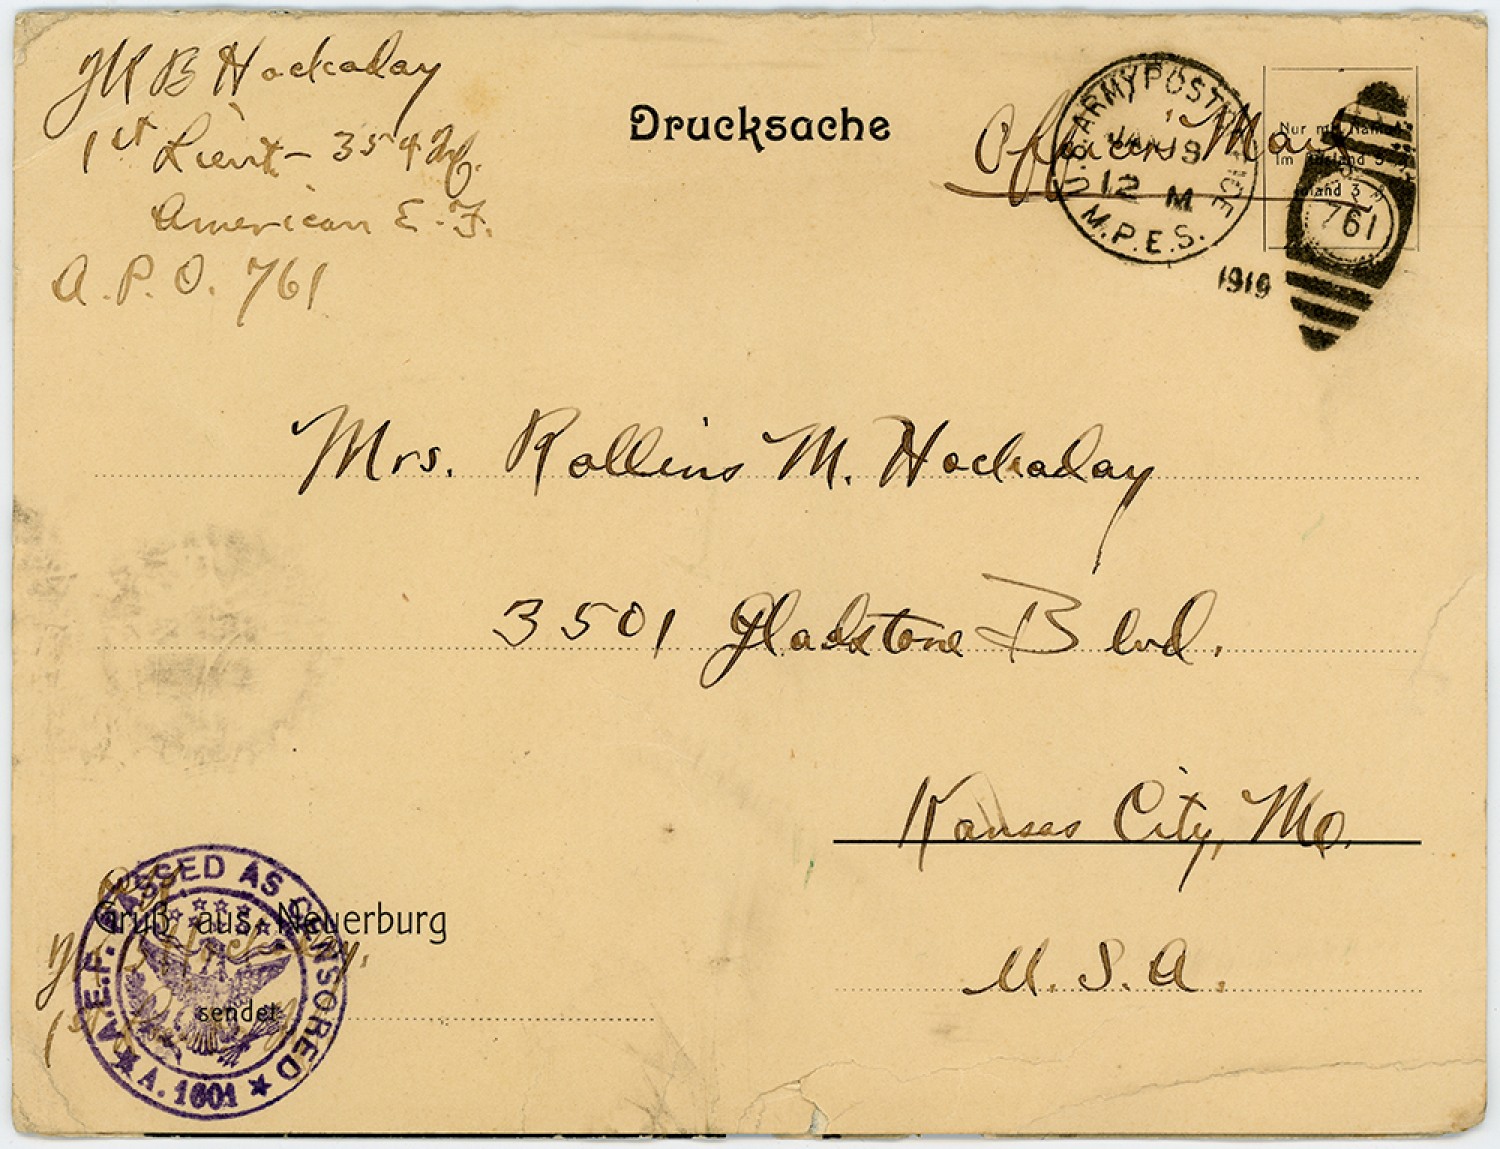 M B Hockaday
1st Lieut- 354 Inf.
American E. F.
A. P. O. 761
Drucksache
Officers' Mail
U.S. ARMY POST OFFICE
JAN 9
12 M
M.P.E.S.
1919
761
Nur mit
Im Ausland 5
Inland 3
Mrs. Rollins M. Hockaday
3501 Gladstone Blvd.
Kansas City, Mo.
U. S. A.
A.E.F. PASSED AS CENSORED
A. 1601
O.K.
Gruß aus Neuerburg
Hockaday.
sendet
1st